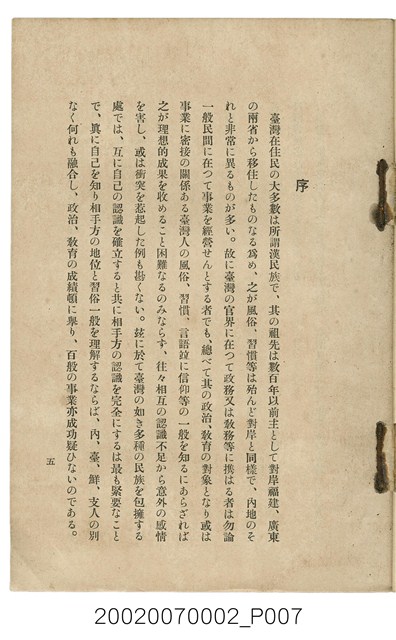 序
臺灣在住民の大多數は所謂漢民族で、其の祖先は數百年以前主として對岸福建、廣東
の兩省から移住したものなる爲め、之が風俗、習慣等は殆んど對岸と同樣で、內地のそ
れと非常に異るものが多い。故に臺灣の官界に在つて政務又は敎務等に携はる者は勿論
一般民間に在つて事業を經營せんとする者でも、總べて其の政治、敎育の對象となり或は
事業に密接の關係ある臺灣人の風俗、習慣、言語竝に信仰等の一般を知るにあらざれば
之が理想的成果を收めること困難なるのみならず、往々相互の認識不足から意外の感情
を害し、或は衝突を惹起した例も尠くない。玆に於て臺灣の如き多種の民族を包擁する
處では、互に自己の認識を確立すると共に相手方の認識を完全にするは最も緊要なこと
で、眞に自己を知り相手方の地位と習俗一般を理解するならば、內、臺、鮮、支人の別
なく何れも融合し、政治、敎育の成績頓に擧り、百般の事業亦成功疑ひないのである。
五
20020070002_P007